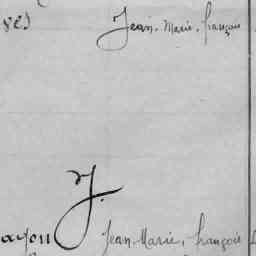 Jean-Marie, françois
J.
ayou Jean-Marie, françois